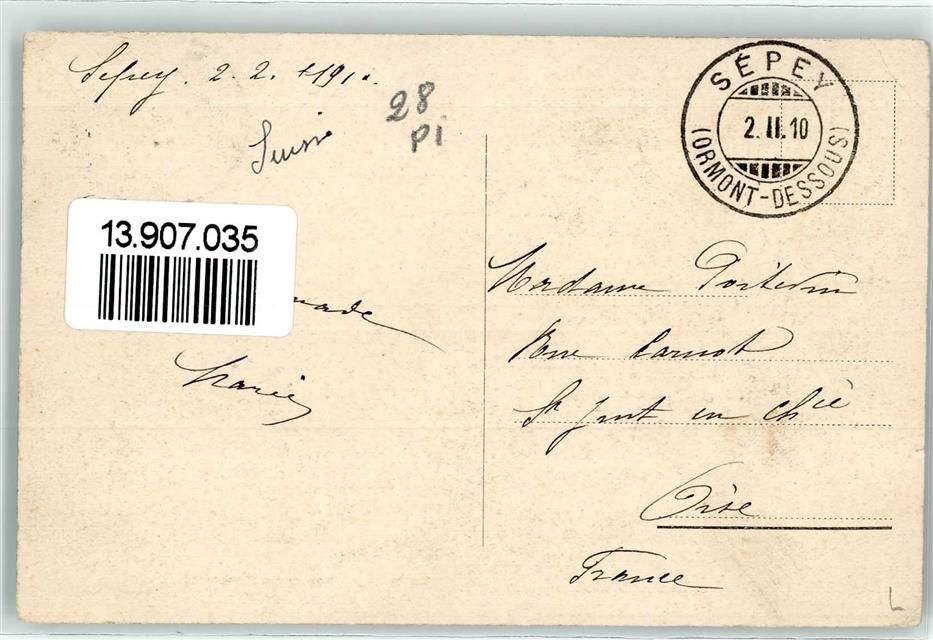 Sépey. 2. 2. 1910.
Suisse
28
pi
13.907.035
Marie
SÉPEY
2.II.10
(ORMONT-DESSOUS)
Madame Poitevin
Rue Carnot
St Just en Chée
Oise
France
L